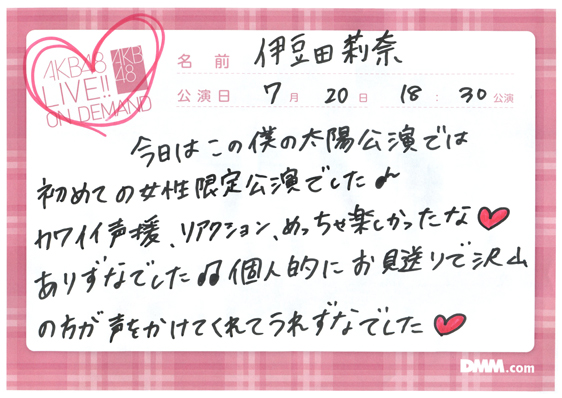 AKB48
LIVE!!
ON DEMAND
AKB
48
名前 伊豆田莉奈
公演日 7月 20日 18:30公演
今日はこの僕の太陽公演では
初めての女性限定公演でした♪
カワイイ声援、リアクション、めっちゃ楽しかったな♥
ありずなでした♫個人的にお見送りで沢山
の方が声をかけてくれてうれずなでした♥
DMM.com